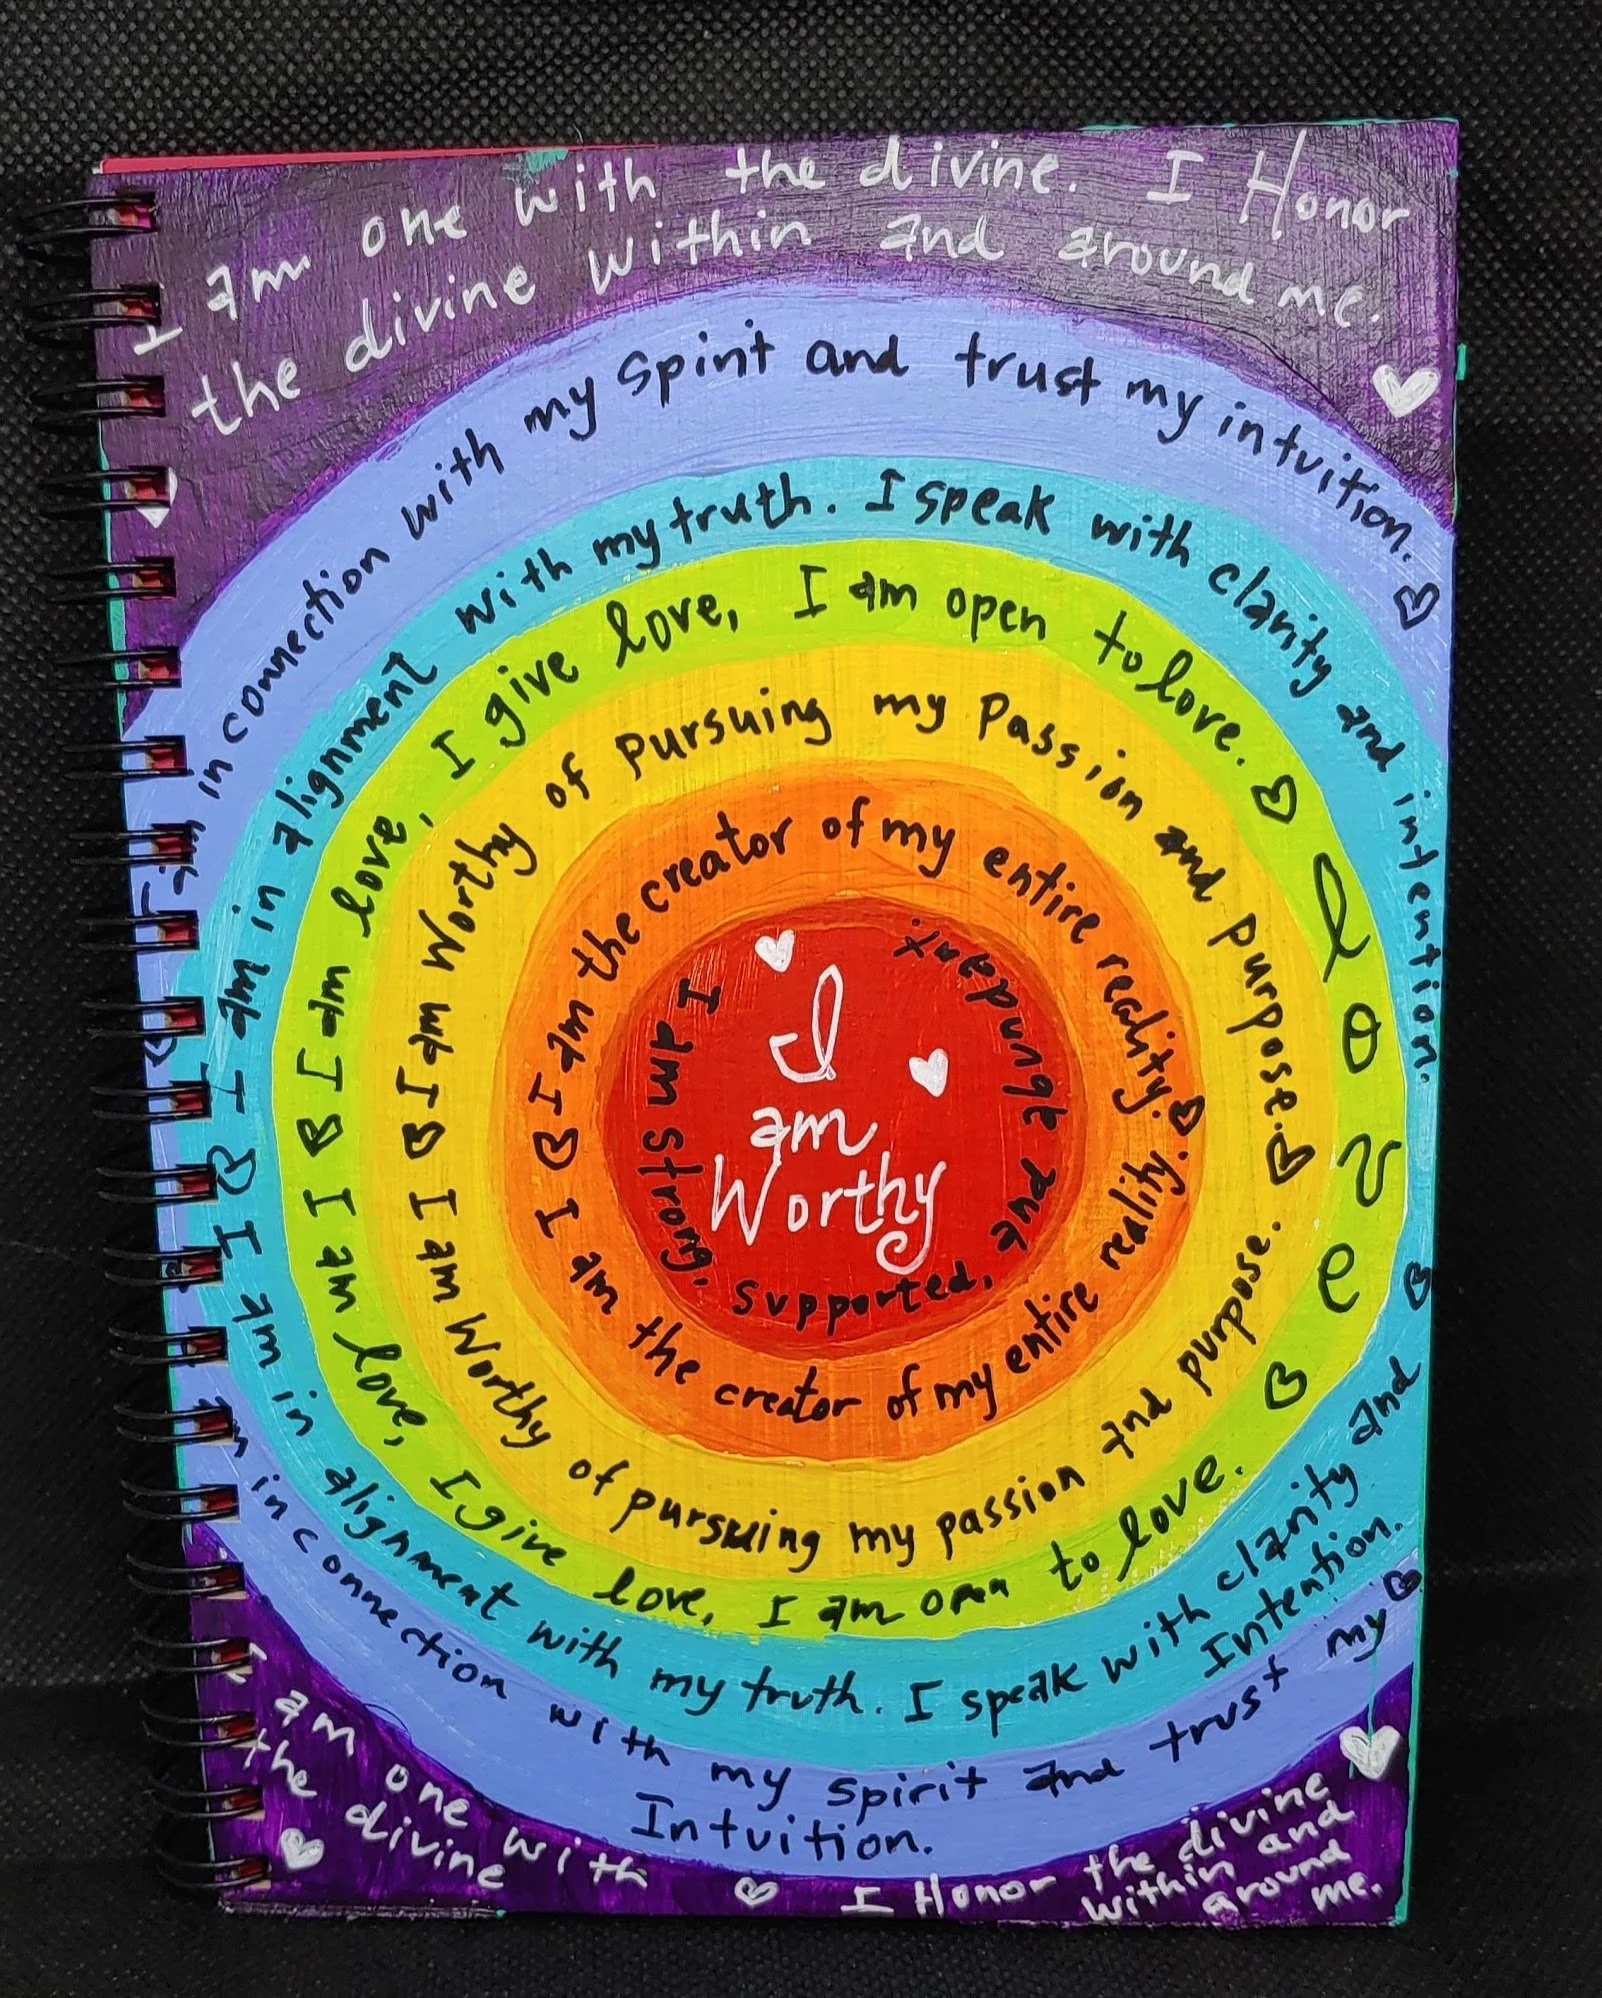 I am one with the divine. I Honor
the divine within and around me.
am in connection with my spirit and trust my intuition.
I am in alignment with my truth. I speak with clarity and intention.
I am love, I give love, I am open to love.
love
I am Worthy of pursuing my passion and purpose.
I am the creator of my entire reality.
I am strong, supported, and abundant.
I
am
Worthy
I am the creator of my entire reality.
I am Worthy of pursuing my passion and purpose.
I am love, I give love, I am open to love.
I am in alignment with my truth. I speak with clarity and
Intention.
in connection with my spirit and trust my
Intuition.
I am one with
the divine
I Honor the divine
within and
around
me.